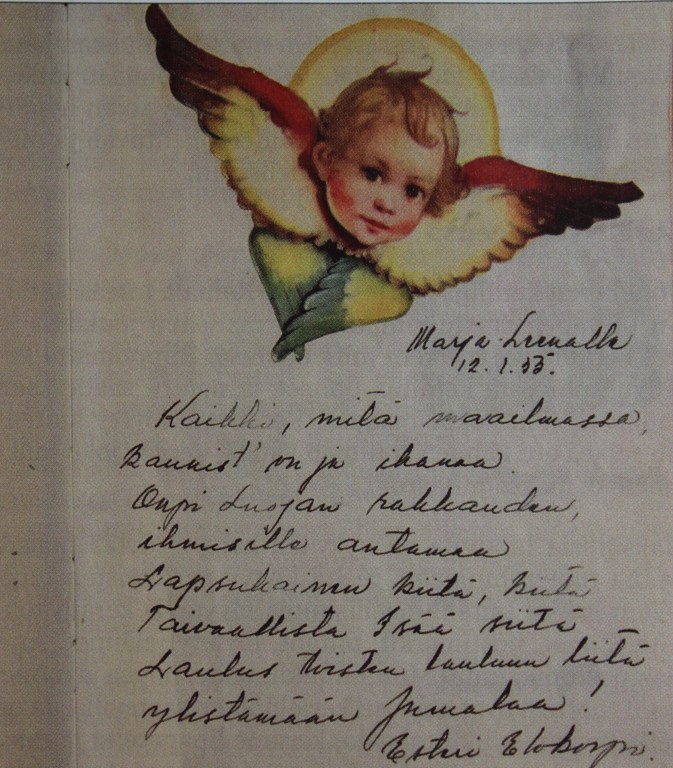 Marja-Leenalle
12.1.55.
Kaikki, mitä maailmassa,
kaunist' on ja ihanaa.
Onpi Luojan rakkauden,
ihmisille antamaa
Lapsukainen kiitä, kiitä
Taivaallista Isää siitä
Laulus toisten lauluun liitä
ylistämään Jumalaa!
Esteri Elokorpi.